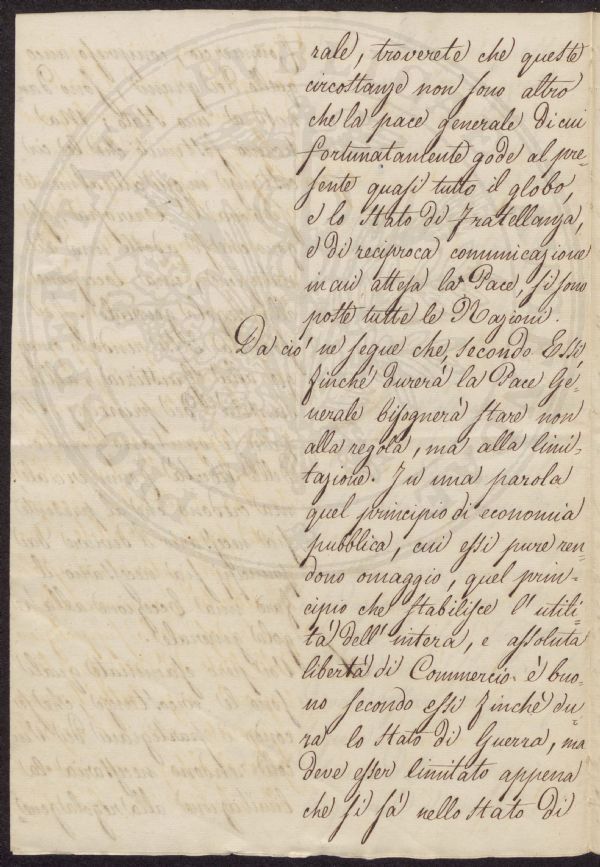 rale, troverete che queste
circostanze non sono altro
che la pace generale di cui
fortunatamente gode al pre=
sente quasi tutto il globo,
e lo Stato di Fratellanza,
e di reciproca comunicazione
in cui attesa la Pace, si sono
poste tutte le Nazioni.
Da ciò ne segue che, secondo Essi
finché durerà la Pace Ge=
nerale bisognerà stare non
alla regola, ma alla limi=
tazione. In una parola
quel principio di economia
pubblica, cui essi pure ren=
dono omaggio, quel prin=
cipio che stabilisce l'utili=
tà dell'intera, e assoluta
libertà di Commercio è buo=
no secondo essi finché du=
ra lo Stato di Guerra, ma
deve esser limitato appena
che si fà nello Stato di